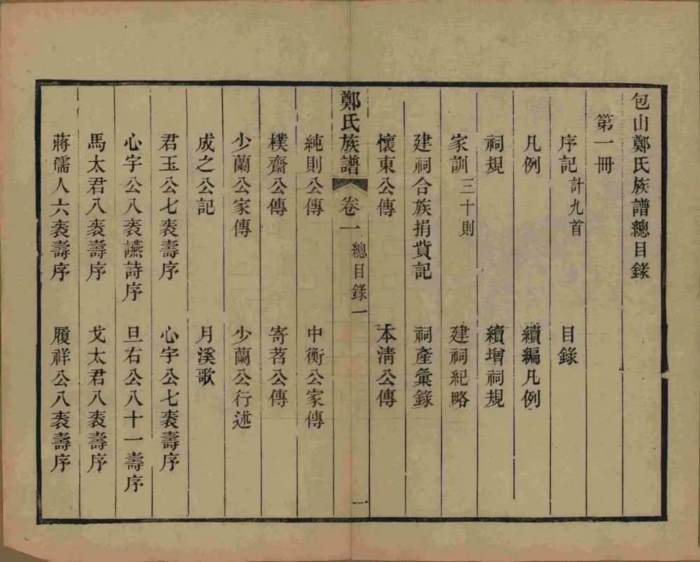 包山鄭氏族譜總目錄
第一冊
序記計九首 目錄
凡例 續編凡例
祠規 續增祠規
家訓三十則 建祠紀略
建祠合族捐貲記 祠產彙錄
懷東公傳 本清公傳
鄭氏族譜 卷一 總目錄一 一
純則公傳 中衡公家傳
樸齋公傳 寄茗公傳
少蘭公家傳 少蘭公行述
成之公記 月溪歌
君玉公七袠壽序 心字公七袠壽序
心字公八袠讌詩序 旦右公八十一壽序
馬太君八袠壽序 戈太君八袠壽序
蔣孺人六袠壽序 履祥公八袠壽序